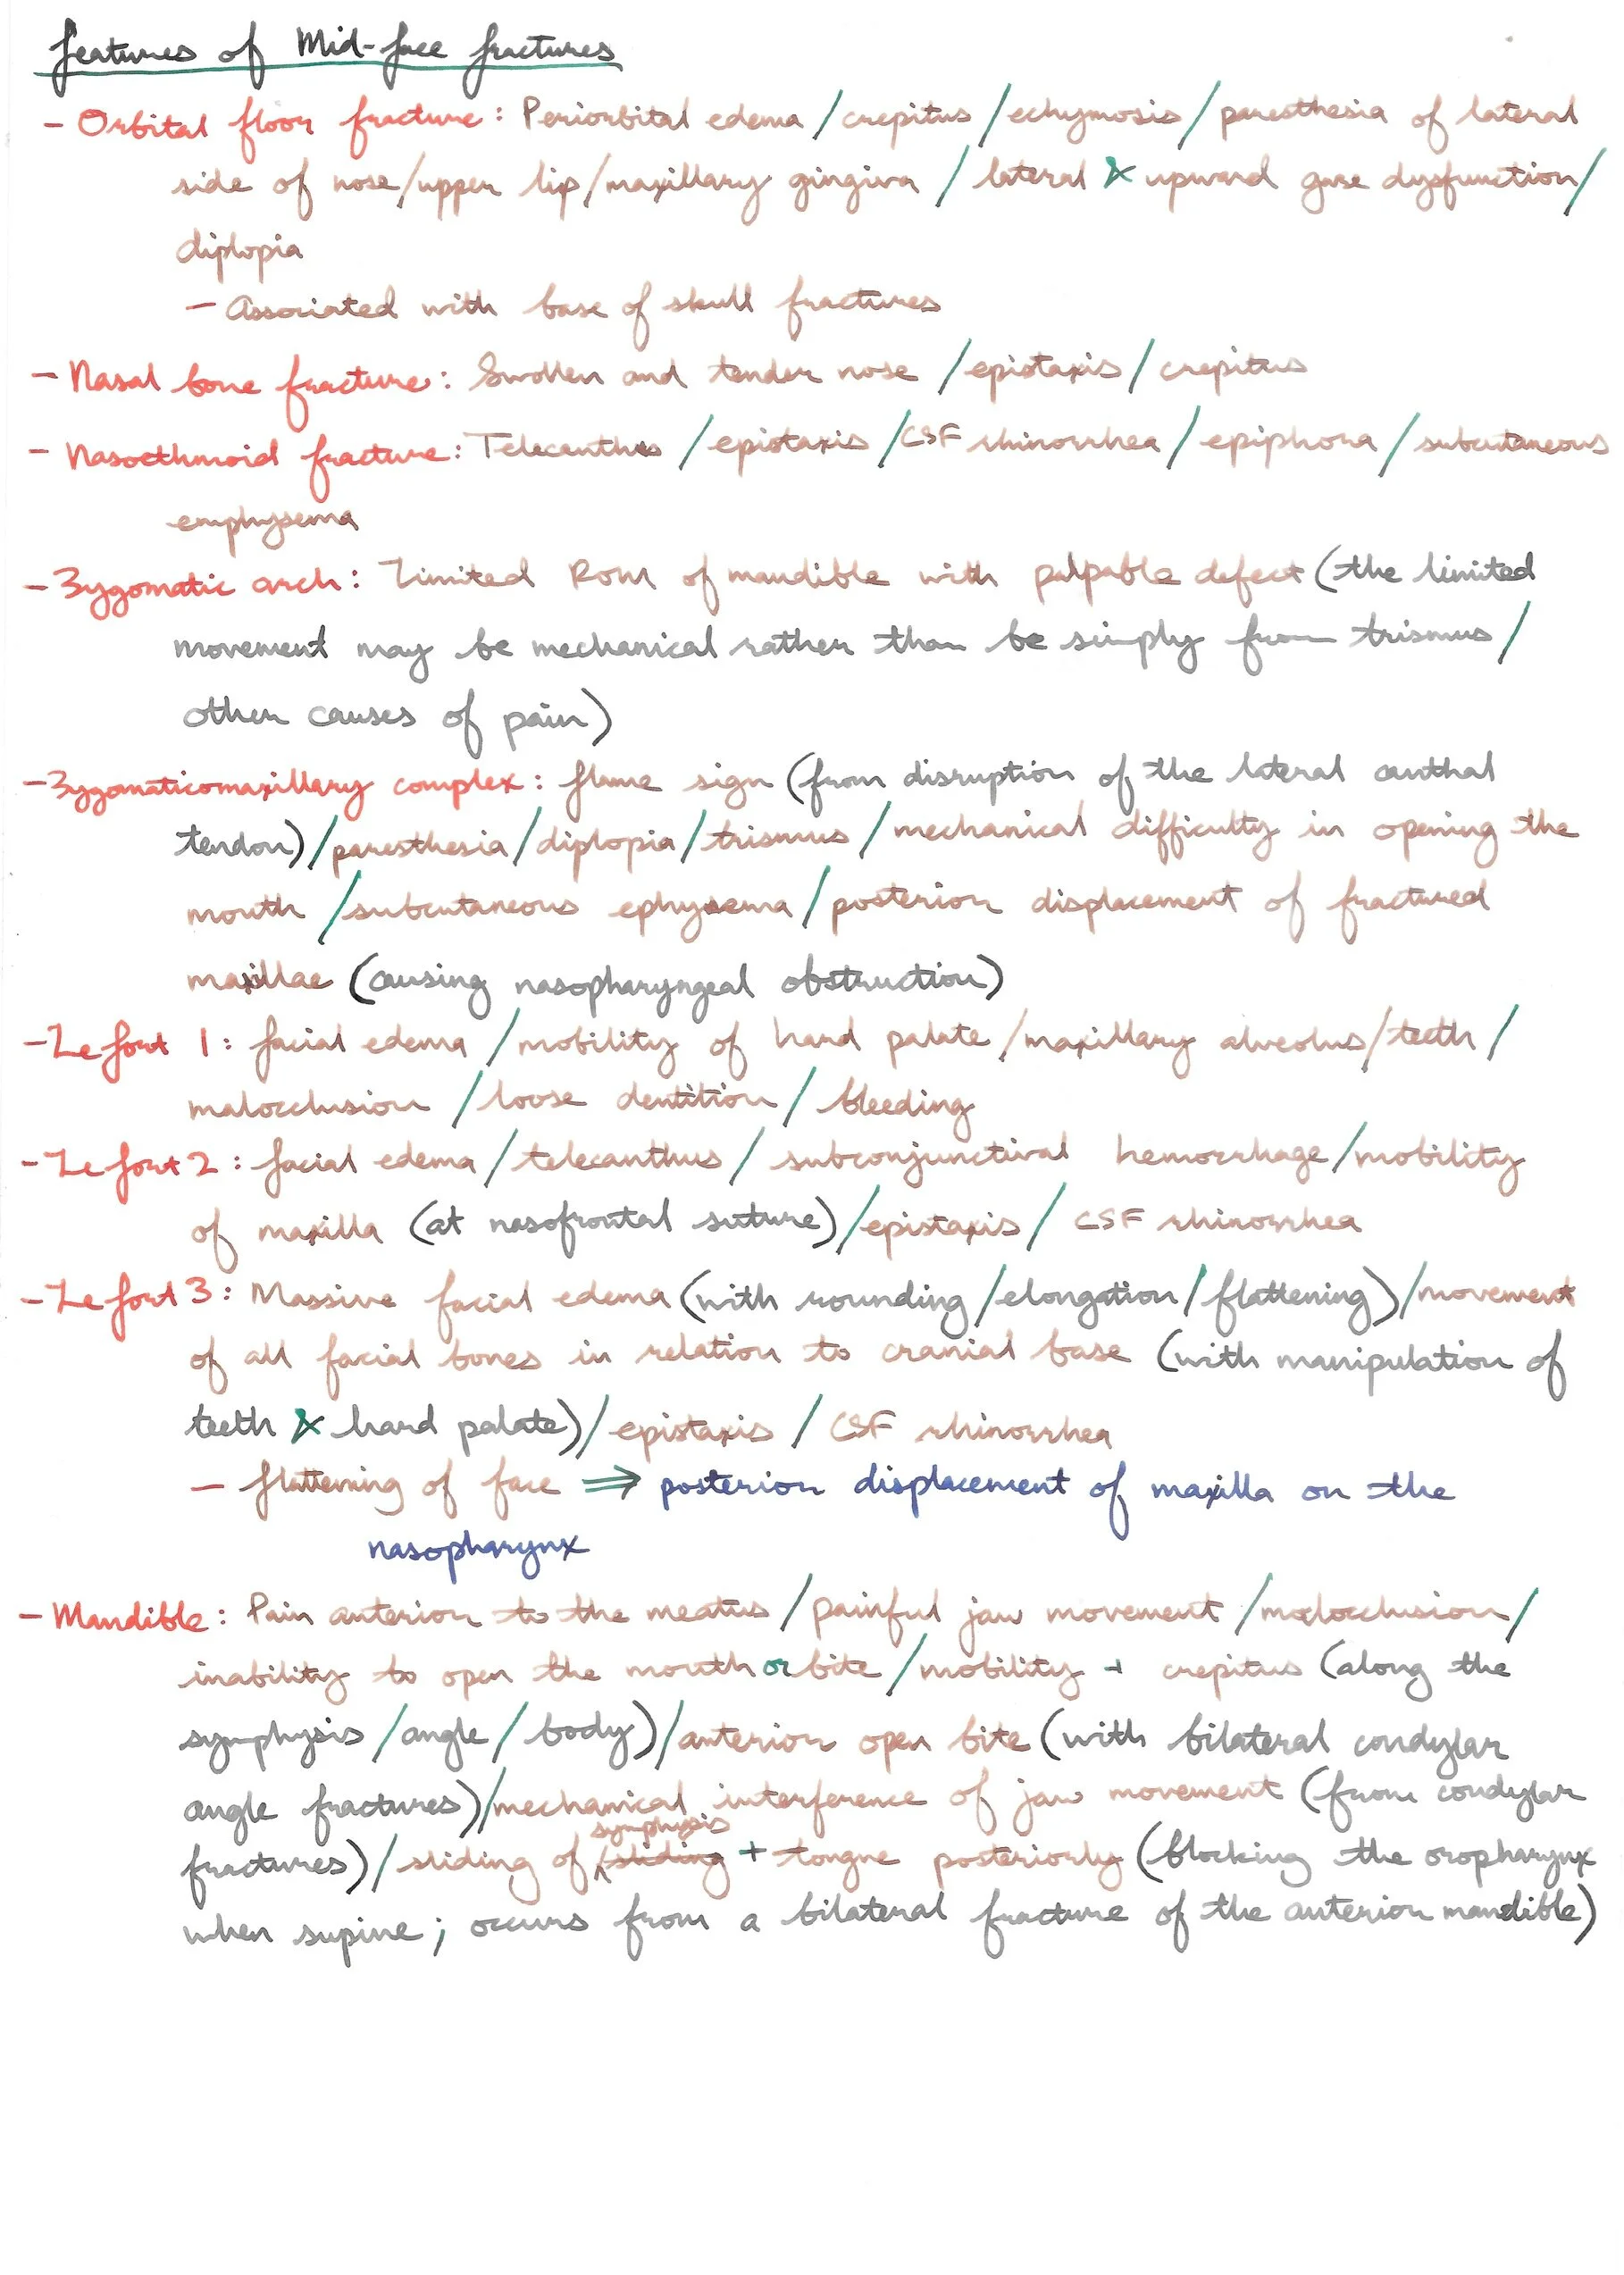 Features of Mid-face fractures
- Orbital floor fracture: Periorbital edema / crepitus / echymosis / paresthesia of lateral
side of nose/upper lip/maxillary gingiva / lateral & upward gaze dysfunction /
diplopia
- Associated with base of skull fractures
- Nasal bone fracture: Swollen and tender nose / epistaxis / crepitus
- Nasoethmoid fracture: Telecanthus / epistaxis / CSF rhinorrhea / epiphora / subcutaneous
emphysema
- Zygomatic arch: Limited ROM of mandible with palpable defect (the limited
movement may be mechanical rather than be simply from trismus /
other causes of pain)
- Zygomaticomaxillary complex: flame sign (from disruption of the lateral canthal
tendon) / paresthesia / diplopia / trismus / mechanical difficulty in opening the
mouth / subcutaneous ephysema / posterior displacement of fractured
maxillae (causing nasopharyngeal obstruction)
- Le fort 1: facial edema / mobility of hard palate /maxillary alveolus/teeth /
malocclusion / loose dentition / bleeding
- Le fort 2: facial edema / telecanthus / subconjunctival hemorrhage / mobility
of maxilla (at nasofrontal suture) / epistaxis / CSF rhinorrhea
- Le fort 3: Massive facial edema (with rounding / elongation / flattening) / movement
of all facial bones in relation to cranial base (with manipulation of
teeth & hard palate) / epistaxis / CSF rhinorrhea
- flattening of face ⇒ posterior displacement of maxilla on the
nasopharynx
- Mandible: Pain anterior to the meatus / painful jaw movement / malocclusion /
inability to open the mouth or bite / mobility + crepitus (along the
symphysis / angle / body) / anterior open bite (with bilateral condylar
angle fractures) / mechanical interference of jaw movement (from condylar
fractures) / sliding of symphysis sliding + tongue posteriorly (blocking the oropharynx
when supine; occurs from a bilateral fracture of the anterior mandible)